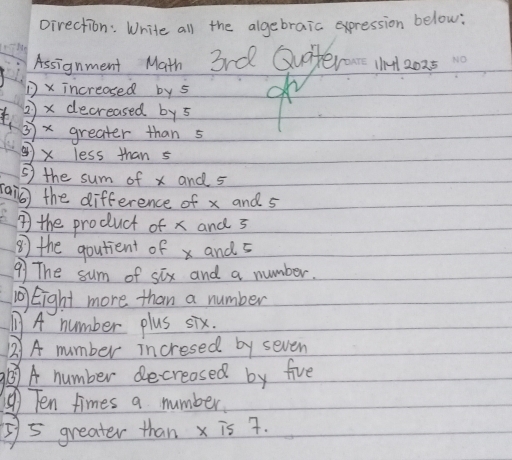 Direction: Write all the algebraic expression below:
Assignment Math 3rd Quater DATE 11/14/2025 NO
1) x increased by 5
2) x decreased by 5
3) x greater than 5
4) x less than 5
5) the sum of x and 5
6) the difference of x and 5
7) the product of x and 5
8) the qoutient of x and 5
9) The sum of six and a number.
10) Eight more than a number
11) A number plus six.
12) A number incresed by seven
13) A number decreased by five
14) Ten times a number.
15) 5 greater than x is 7.